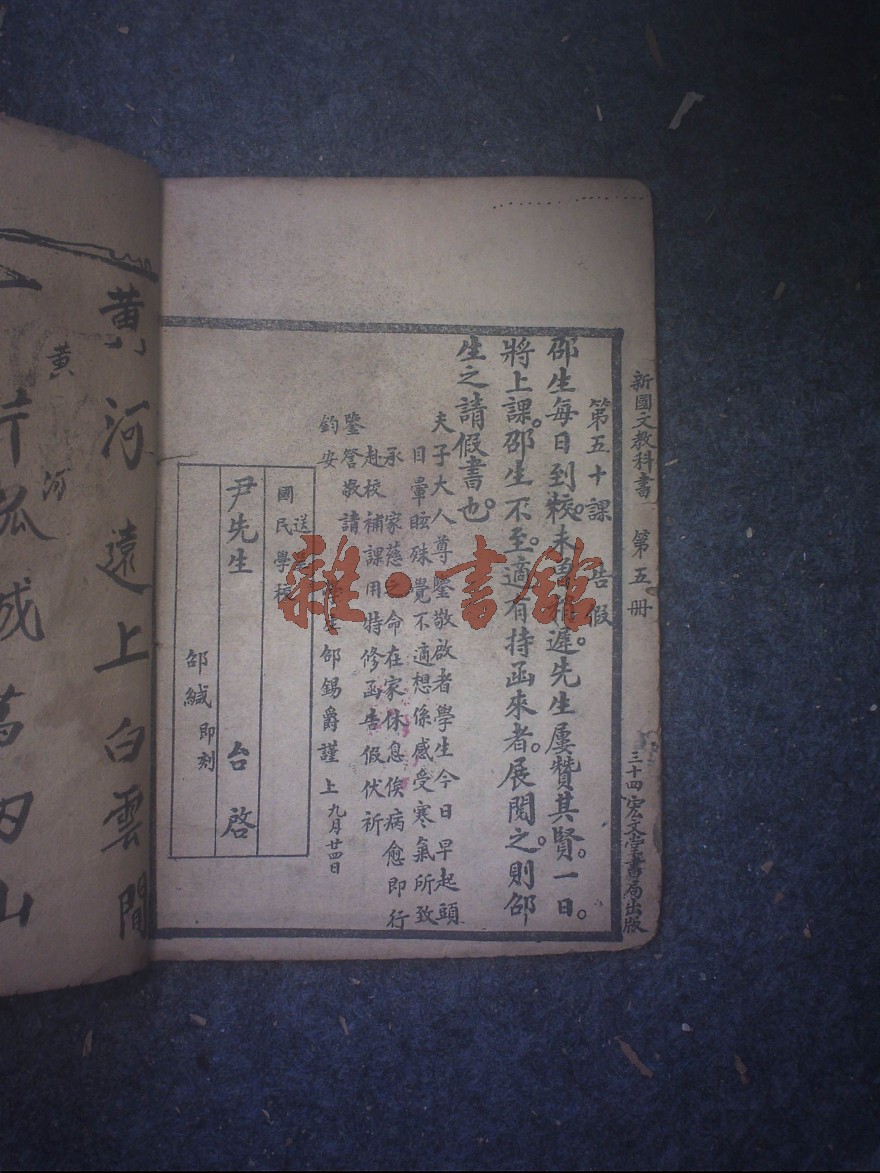 新國文教科書 第五册
三十四 宏文堂書局出版
第五十課 告假
邵生每日到校。未嘗稍遲。先生屢贊其賢。一日。
將上課。邵生不至。適有持函來者。展閱之。則邵
生之請假書也。
夫子大人尊鑒敬啟者學生今日早起頭
目暈眩殊覺不適想係感受寒氣所致
承 家慈之命在家休息俟病愈即行
赴校補課用特修函告假伏祈
鑒詧敬請
鈞安 邵錫爵謹上 九月廿四日
送
國民學校
尹先生 台啓
邵緘 即刻
黃河遠上白雲間
黃河
一片孤城萬仞山
雜·書館